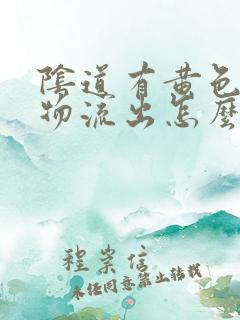 陰道有黄色
物流出怎麼
程崇信
未任同意禁止转载